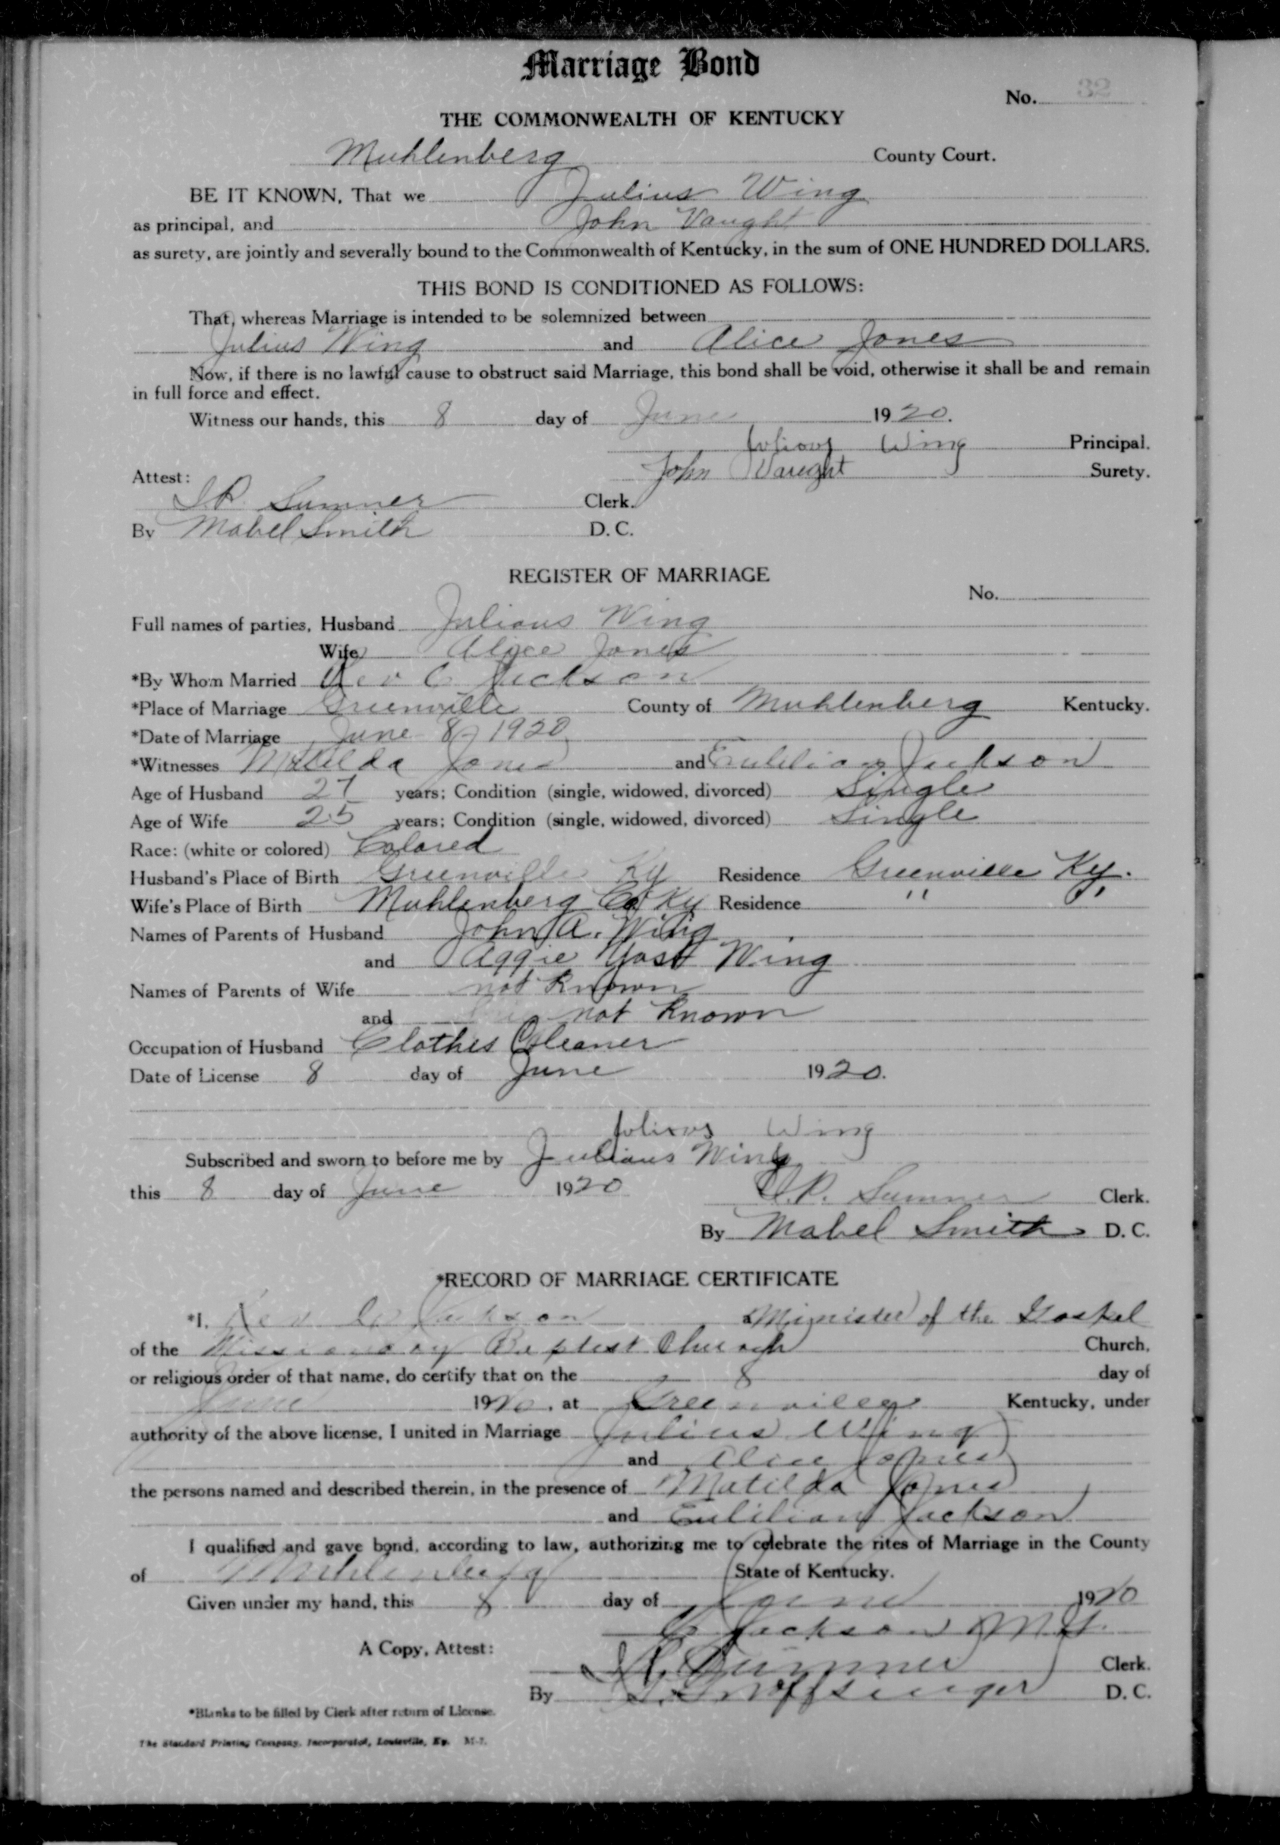 Marriage Bond
No. 32
THE COMMONWEALTH OF KENTUCKY
Muhlenberg County Court.
BE IT KNOWN, That we Julius Wing
as principal, and John Vaught
as surety, are jointly and severally bound to the Commonwealth of Kentucky, in the sum of ONE HUNDRED DOLLARS.
THIS BOND IS CONDITIONED AS FOLLOWS:
That, whereas Marriage is intended to be solemnized between
Julius Wing and Alice Jones
Now, if there is no lawful cause to obstruct said Marriage, this bond shall be void, otherwise it shall be and remain
in full force and effect.
Witness our hands, this 8 day of June 1920.
Julious Wing Principal.
Attest: John Vaught Surety.
Sumner Clerk.
By Mabel Smith D. C.
REGISTER OF MARRIAGE
No.
Full names of parties, Husband Julious Wing
Wife Alice Jones
*By Whom Married Rev C Jackson
*Place of Marriage Greenville County of Muhlenberg Kentucky.
*Date of Marriage June 8, 1920
*Witnesses Matilda Jones and Eulilian Jackson
Age of Husband 27 years; Condition (single, widowed, divorced) Single
Age of Wife 25 years; Condition (single, widowed, divorced) Single
Race: (white or colored) Colored
Husband's Place of Birth Greenville Ky Residence Greenville Ky.
Wife's Place of Birth Muhlenberg Co Ky Residence " "
Names of Parents of Husband John A. Wing
and Aggie Yost Wing
Names of Parents of Wife not known
and not known
Occupation of Husband Clothes Cleaner
Date of License 8 day of June 1920.
Wing
Subscribed and sworn to before me by Julious Wing
this 8 day of June 1920 Sumner Clerk.
By Mabel Smith D. C.
*RECORD OF MARRIAGE CERTIFICATE
*I, Rev C Jackson Minister of the Gospel
of the Missionary Baptist Church Church,
or religious order of that name, do certify that on the 8 day of
June 1920, at Greenville Kentucky, under
authority of the above license, I united in Marriage Julius Wing
and Alice Jones
the persons named and described therein, in the presence of Matilda Jones
and Eulilian Jackson
I qualified and gave bond, according to law, authorizing me to celebrate the rites of Marriage in the County
of Muhlenberg State of Kentucky.
Given under my hand, this 8 day of June 1920
C Jackson M G.
A Copy, Attest: Sumner Clerk.
By D. C.
*Blanks to be filled by Clerk after return of License.
The Standard Printing Company, Incorporated, Louisville, Ky. M-7.